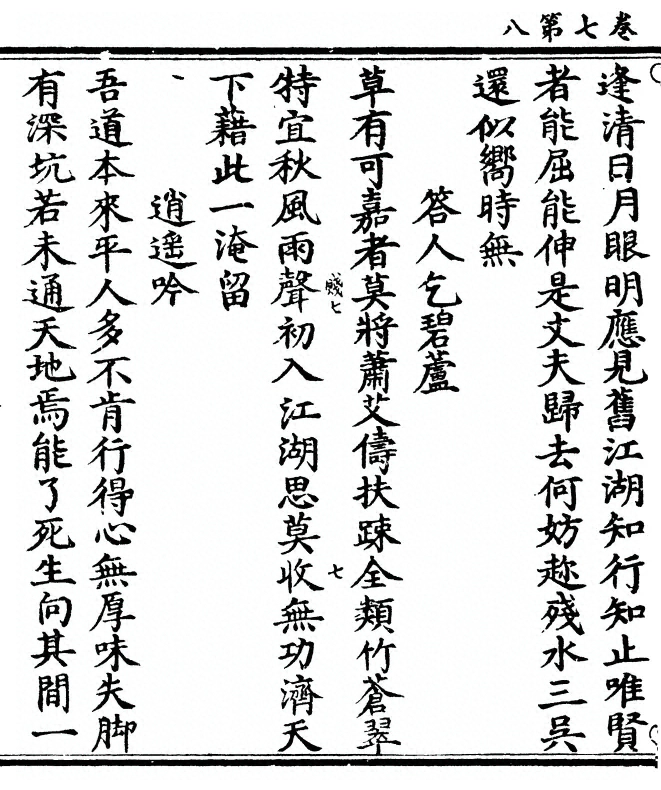 卷七第八
逢清日月眼明應見舊江湖知行知止唯賢
者能屈能伸是丈夫歸去何妨趂殘水三吳
還似嚮時無
答人乞碧蘆
草有可嘉者莫將蕭艾儔扶踈全類竹蒼翠
七
七
特宜秋風雨聲初入江湖思莫收無功濟天
下藉此一淹留
逍遙吟
吾道本來平人多不肯行得心無厚味失脚
有深坑若未通天地焉能了死生向其間一